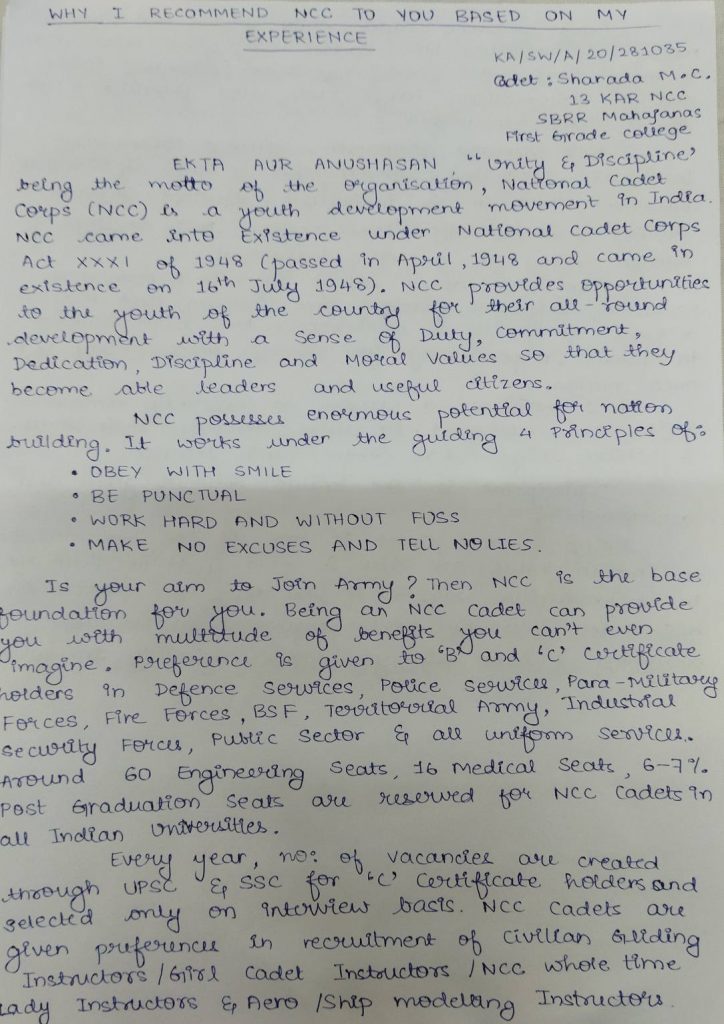 WHY I RECOMMEND NCC TO YOU BASED ON MY
EXPERIENCE
KA/SW/A/20/281035
Cadet : Sharada M.C.
13 KAR NCC
SBRR Mahajanas
First Grade College
EKTA AUR ANUSHASAN "Unity & Discipline'
being the motto of the organisation, National Cadet
Corps (NCC) is a youth development movement in India.
NCC came into Existence under National Cadet Corps
Act XXXI of 1948 (passed in April, 1948 and came in
existence on 16th July 1948). NCC provides opportunities
to the youth of the country for their all-round
development with a Sense of Duty, Commitment,
Dedication, Discipline and Moral Values so that they
become able leaders and useful citizens.
NCC possesses enormous potential for nation
building. It works under the guiding 4 Principles of:
• OBEY WITH SMILE
• BE PUNCTUAL
• WORK HARD AND WITHOUT FUSS
• MAKE NO EXCUSES AND TELL NO LIES.
Is your aim to Join Army? Then NCC is the base
foundation for you. Being an NCC Cadet can provide
you with multitude of benefits you can't even
imagine. Preference is given to 'B' and 'C' Certificate
holders in Defence Services, Police Services, Para-Military
Forces, Fire Forces, BSF, Territorrial Army, Industrial
Security Forces, Public Sector & all uniform services.
Around 60 Engineering Seats, 16 Medical Seats, 6-7%
Post Graduation Seats are reserved for NCC Cadets in
all Indian Universities.
Every year, no: of vacancies are created
through UPSC & SSC for 'C' Certificate holders and
selected only on interview basis. NCC Cadets are
given preference in recruitment of Civilian Gliding
Instructors/Girl Cadet Instructors/NCC whole time
Lady Instructors & Aero/Ship modelling Instructors.